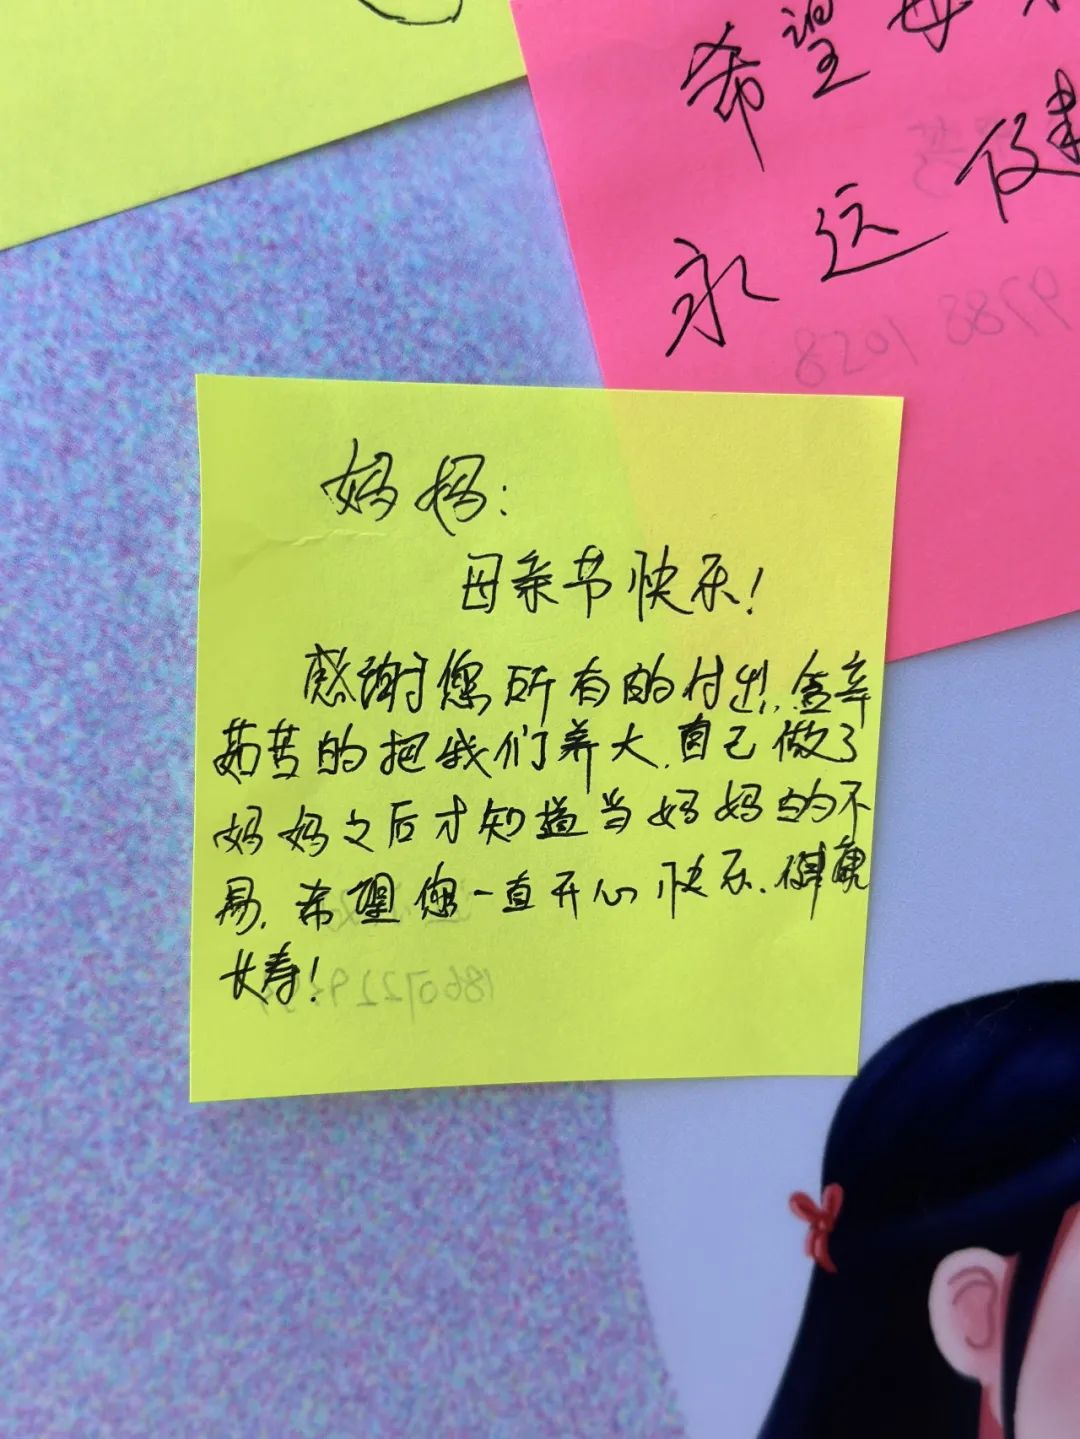 希望母
永远健
妈妈:
母亲节快乐!
感谢您所有的付出,含辛
茹苦的把我们养大.自己做了
妈妈之后才知道当妈妈的不
易.希望您一直开心快乐.健康
长寿!